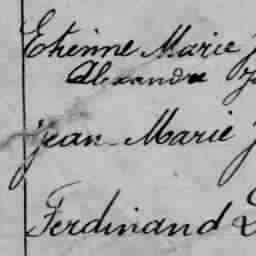 Etienne Marie
Alexandre
Jean-Marie
Ferdinand